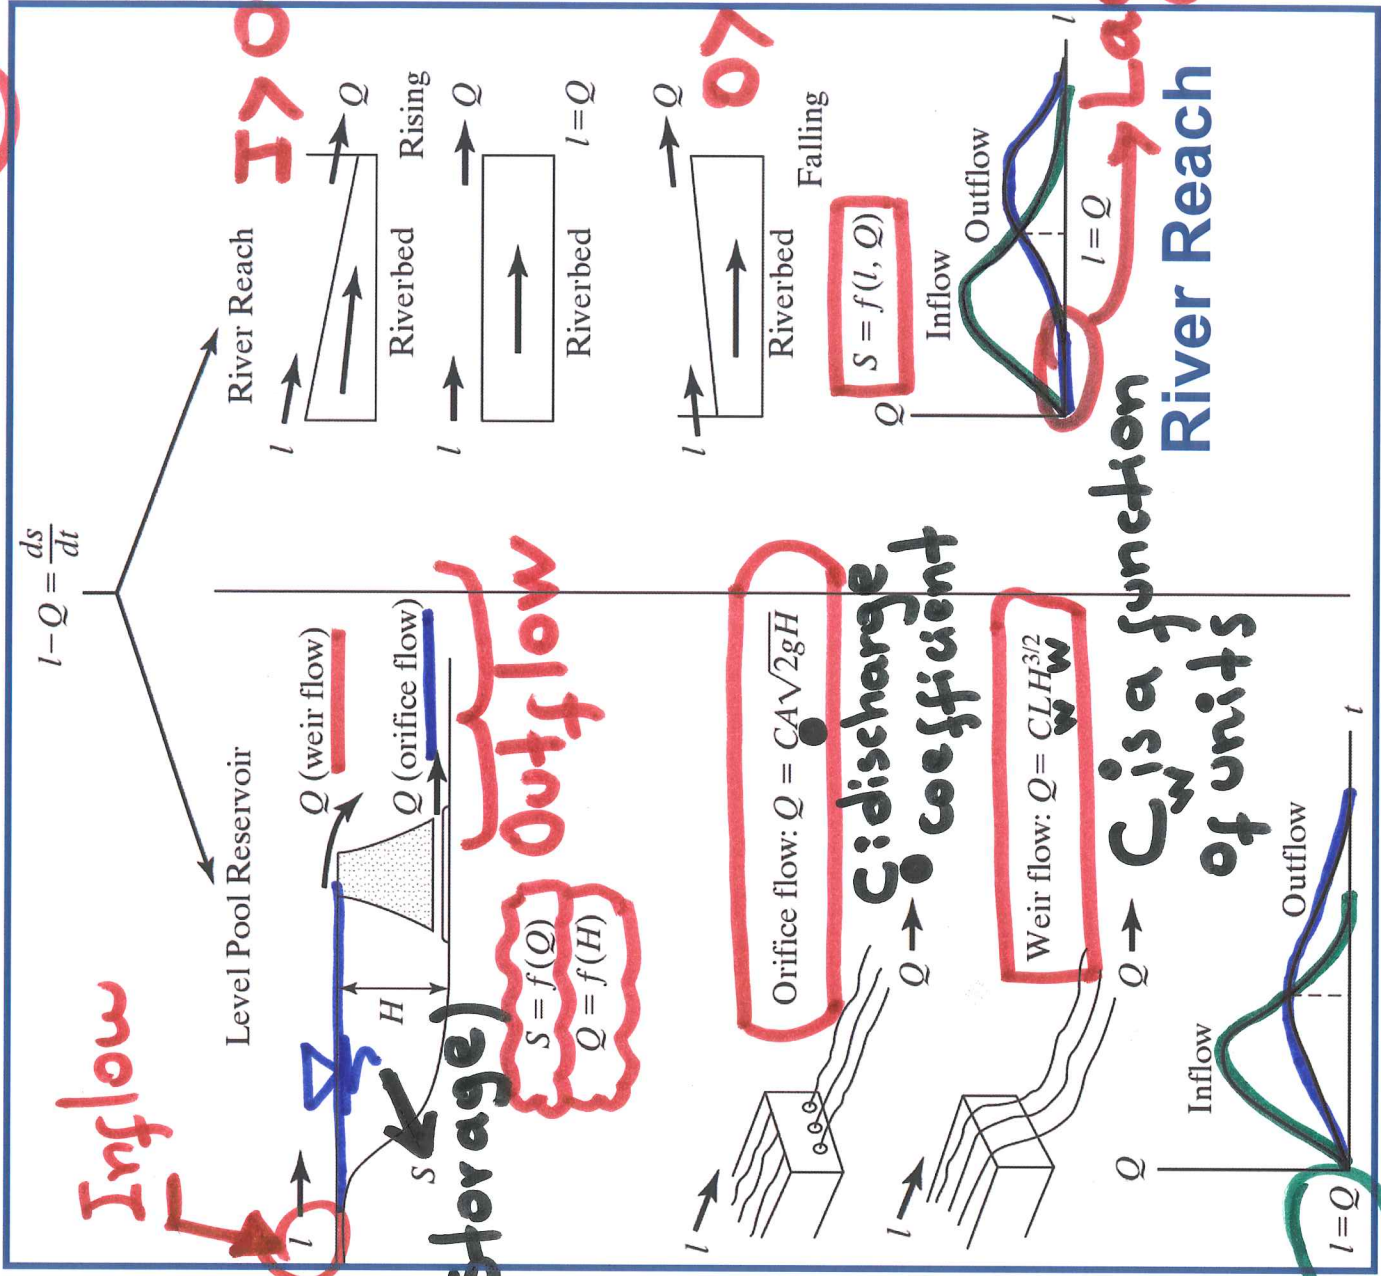 l − Q = ds/dt
Level Pool Reservoir
Inflow
l
Q (weir flow)
Q (orifice flow)
H
S
Outflow
S = f(Q)
Q = f(H)
l
Orifice flow: Q = CA√2gH
C: discharge
coefficient
Q
l
Weir flow: Q = CLH^3/2
w w
Q
Cw is a function
of units
Q
Inflow
Outflow
l = Q
t
River Reach
I > O
l
Q
Riverbed
Rising
l
Q
Riverbed
l = Q
l
Q
Riverbed
Falling
S = f(l, Q)
Q
Inflow
Outflow
l = Q
l
River Reach